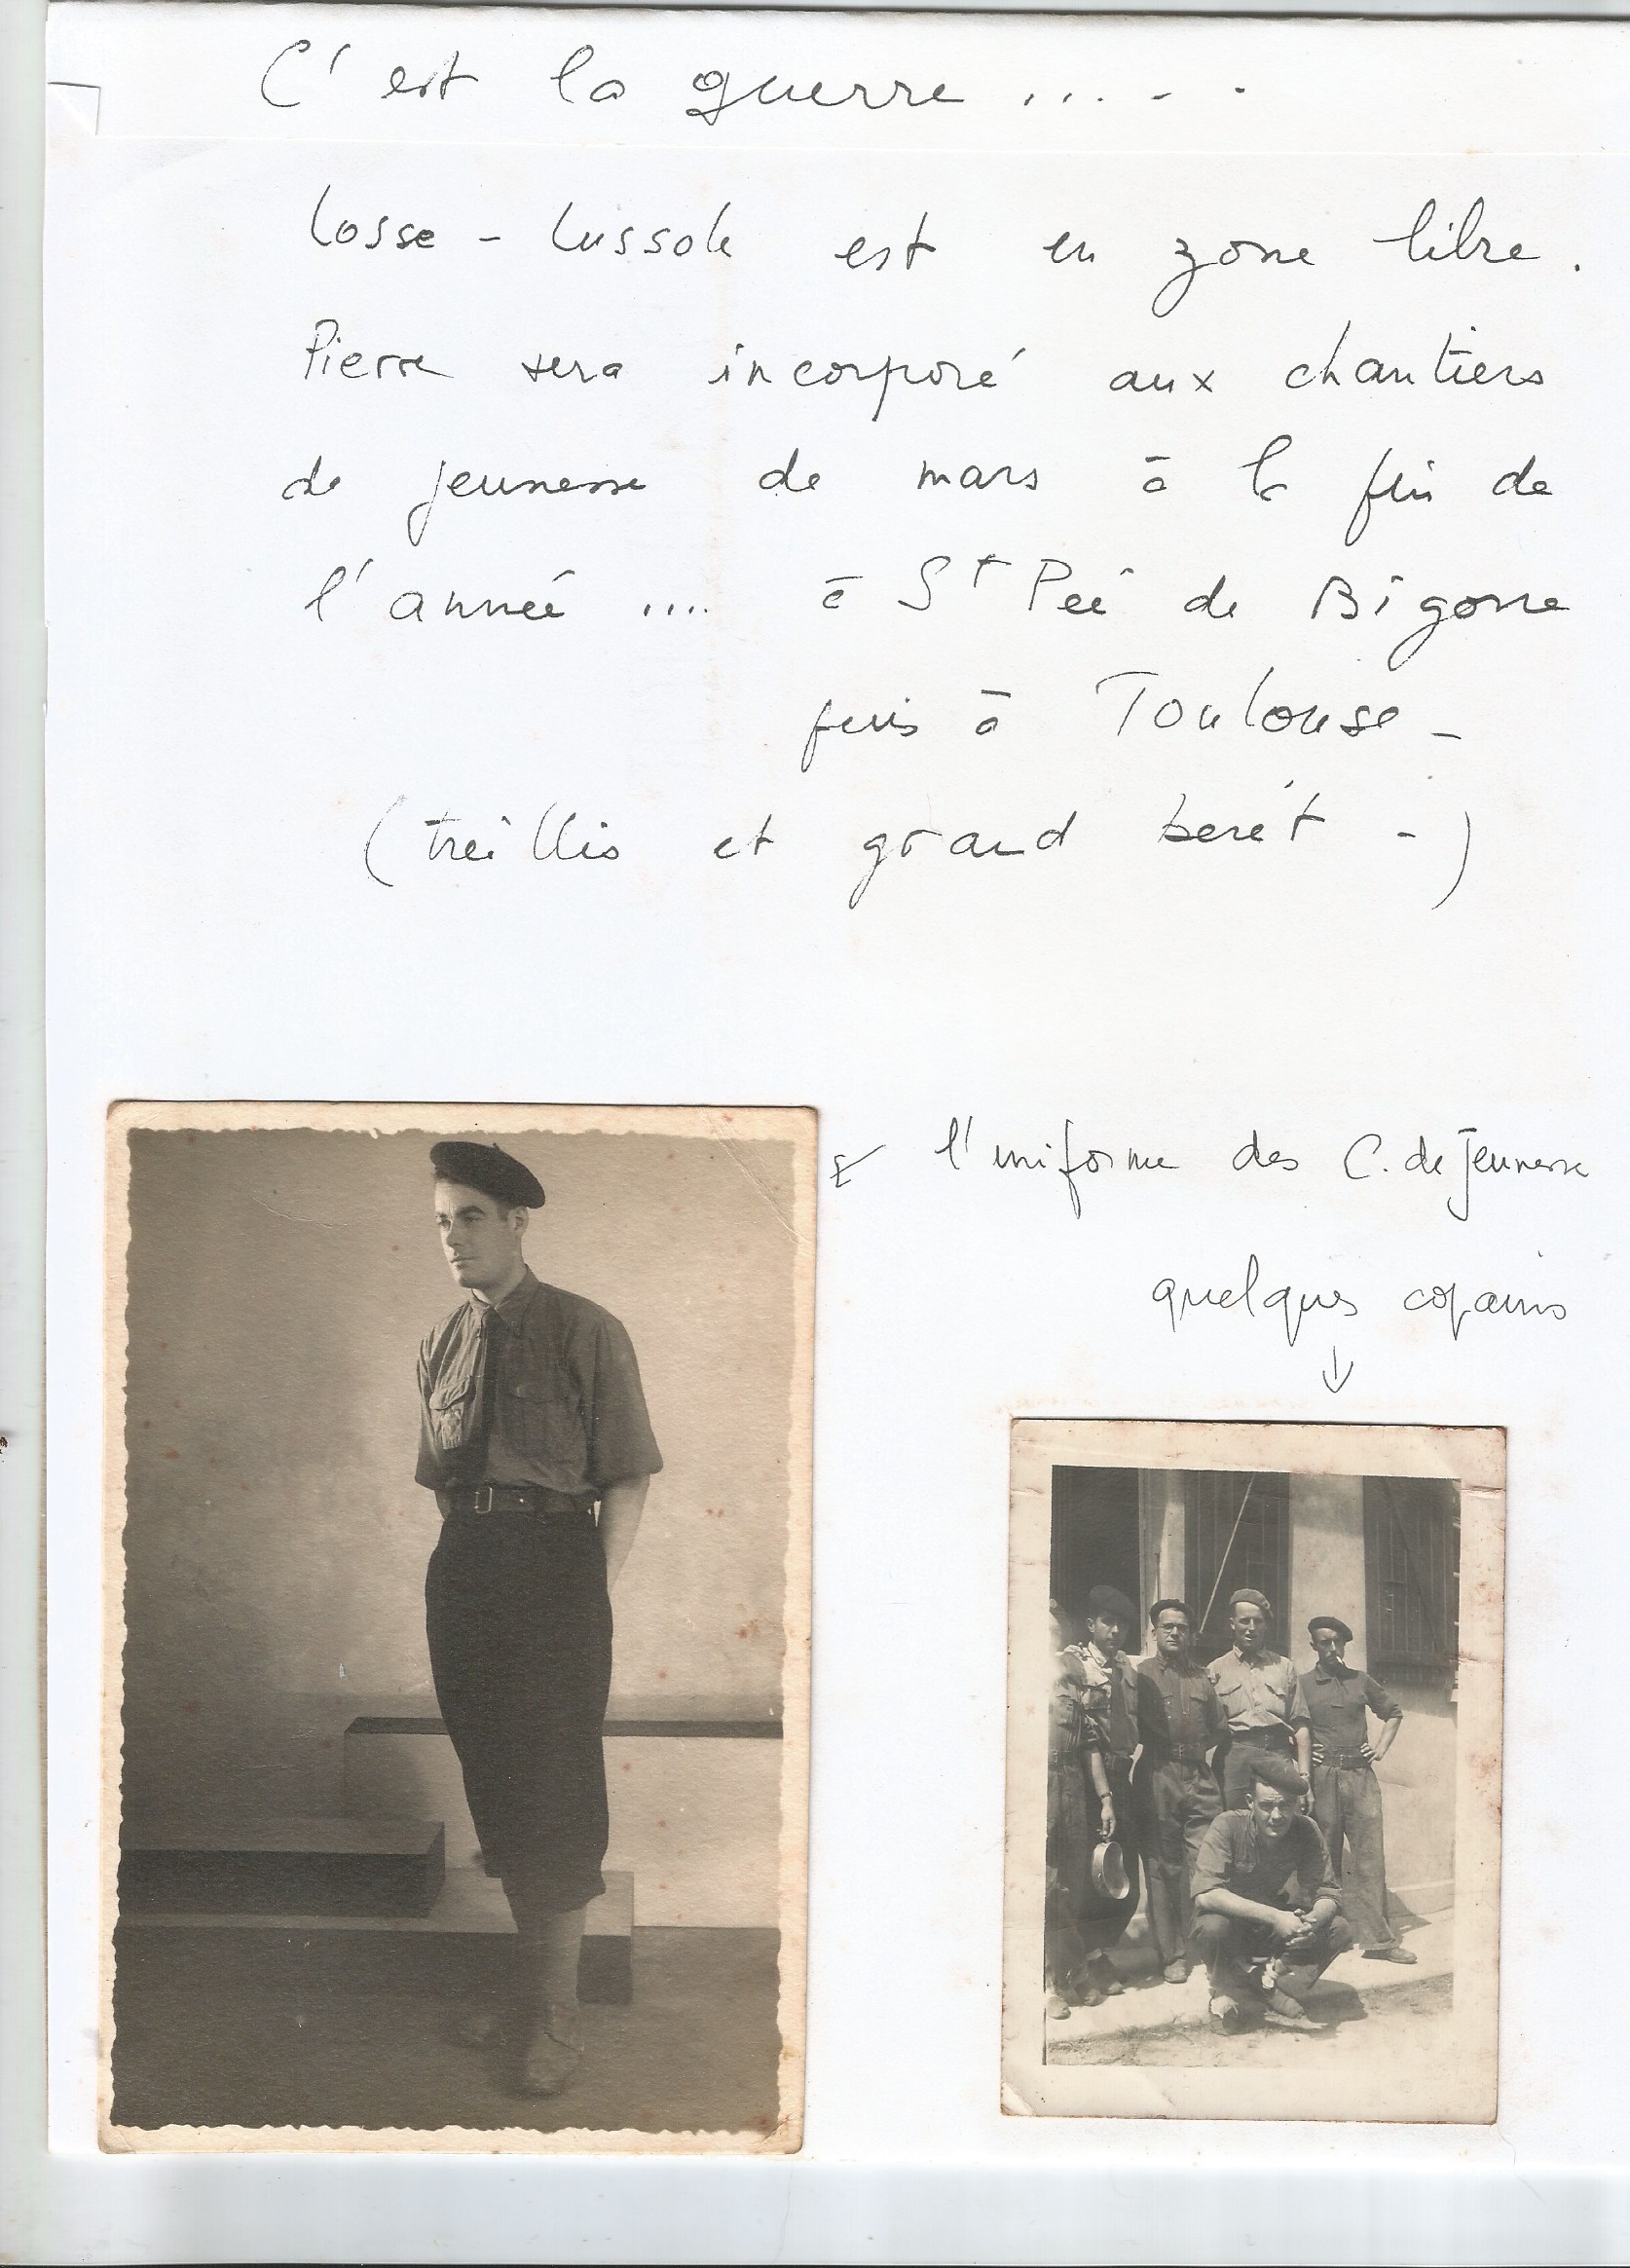 C'est la guerre ..... - .
Losse - Lussole est en zone libre.
Pierre sera incorporé aux chantiers
de jeunesse de mars à la fin de
l'année .... à St Peé de Bigorre
puis à Toulouse -
(treillis et grand beret - )
l'uniforme des C. de Jeunesse
quelques copains